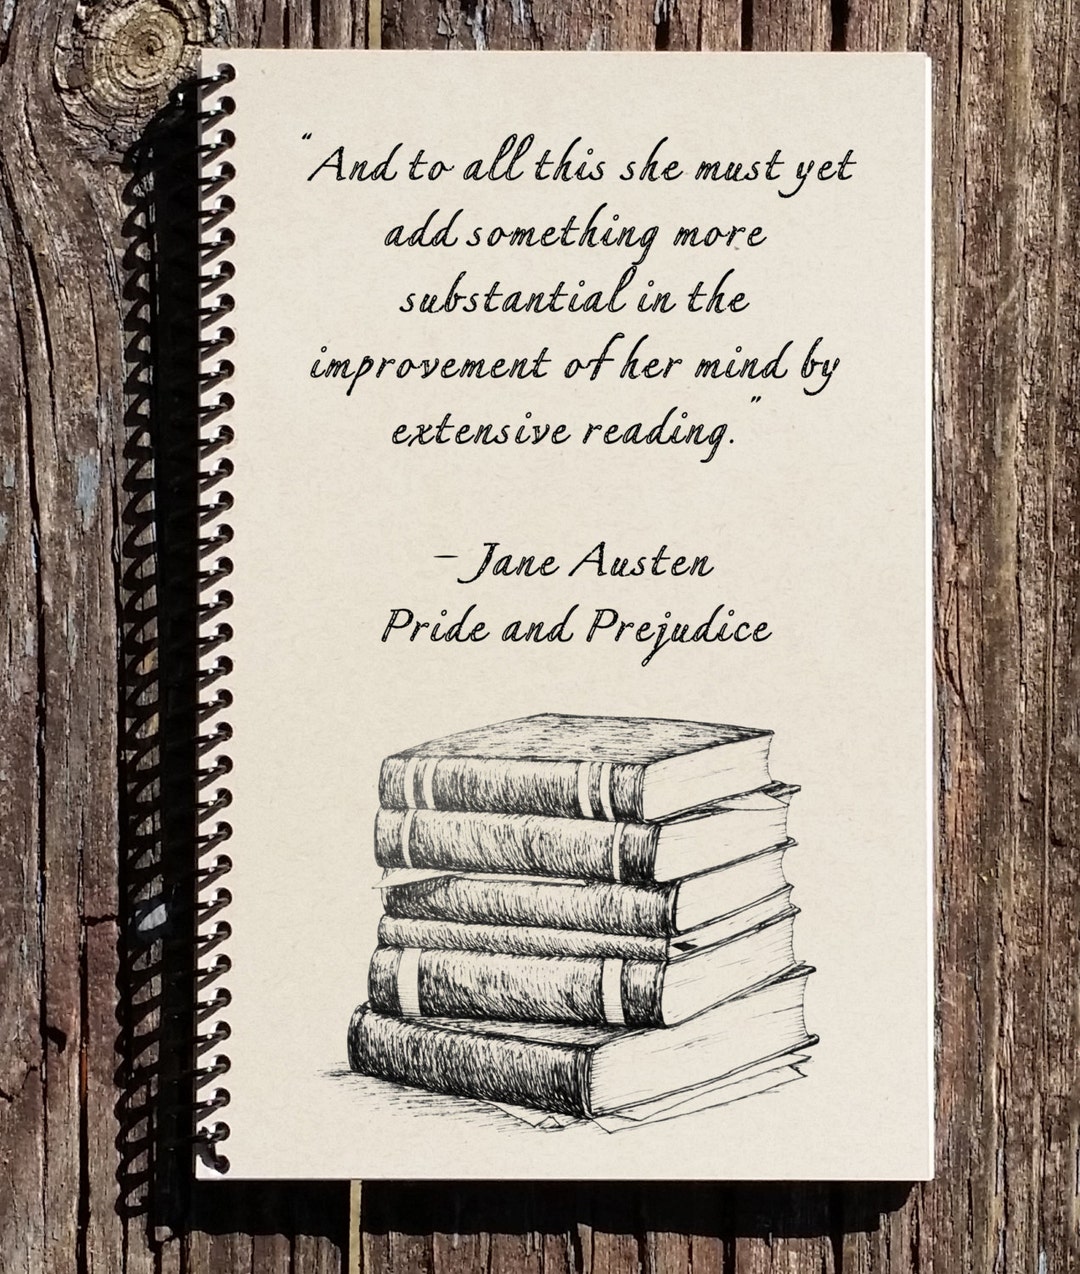 “And to all this she must yet
add something more
substantial in the
improvement of her mind by
extensive reading.”
– Jane Austen
Pride and Prejudice